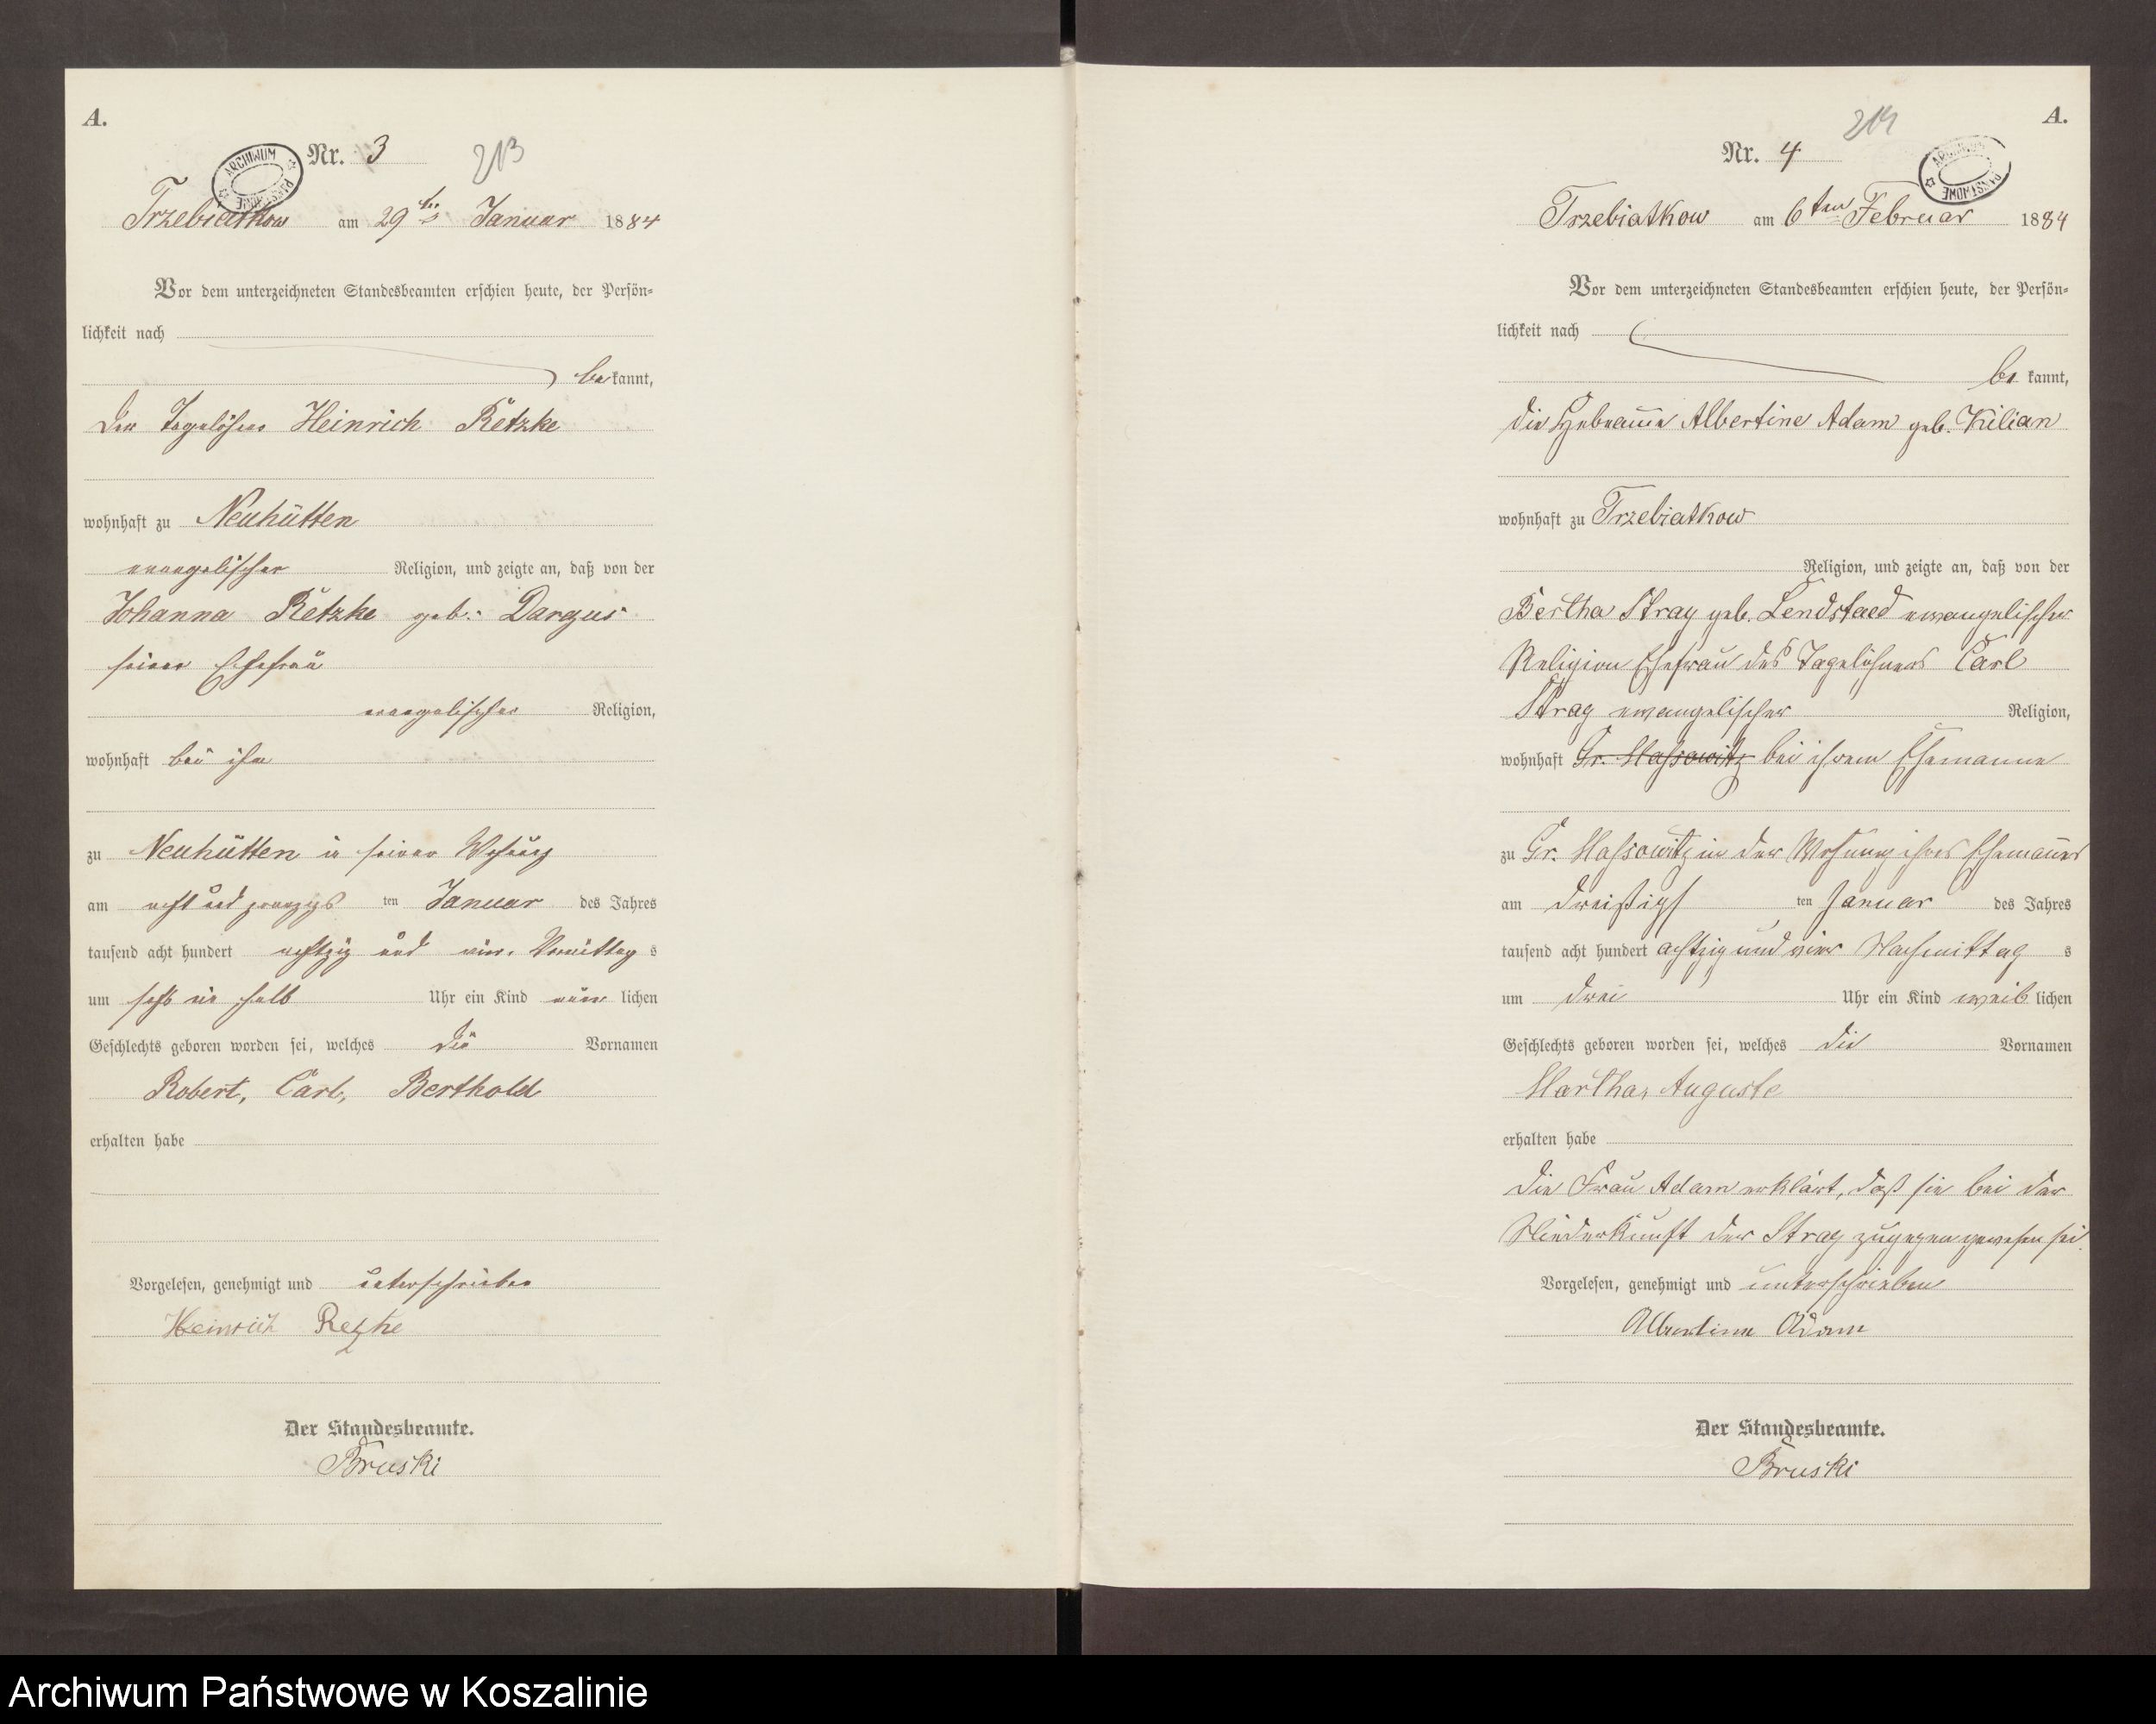 A.
Nr. 3
213
ARCHIWUM PAŃSTWOWE
Trzebiatkow am 29ten Januar 1884
Vor dem unterzeichneten Standesbeamten erschien heute, der Persön-
lichkeit nach
bekannt,
der Tagelöhner Heinrich Retzke
wohnhaft zu Neuhütten
evangelischer Religion, und zeigte an, daß von der
Johanna Retzke geb. Dargus
seiner Ehefrau
evangelischer Religion,
wohnhaft bei ihm
zu Neuhütten in seiner Wohnung
am acht und zwanzigsten Januar des Jahres
tausend acht hundert achtzig und vier Vormittags
um sechs ein halb Uhr ein Kind männlichen
Geschlechts geboren worden sei, welches die Vornamen
Robert, Carl, Berthold
erhalten habe
Vorgelesen, genehmigt und unterschrieben
Heinrich Retzke
Der Standesbeamte.
Bruski
A.
Nr. 4
214
ARCHIWUM PAŃSTWOWE
Trzebiatkow am 6ten Februar 1884
Vor dem unterzeichneten Standesbeamten erschien heute, der Persön-
lichkeit nach
bekannt,
die Hebeamme Albertine Adam geb. Kilian
wohnhaft zu Trzebiatkow
Religion, und zeigte an, daß von der
Bertha Strag geb. Lendstaed evangelischer
Religion Ehefrau des Tagelöhners Carl
Strag evangelischer Religion,
wohnhaft Gr. Massowitz bei ihrem Ehemanne
zu Gr. Massowitz in der Wohnung ihres Ehemannes
am dreißigsten Januar des Jahres
tausend acht hundert achtzig und vier Nachmittags
um drei Uhr ein Kind weiblichen
Geschlechts geboren worden sei, welches die Vornamen
Martha, Auguste
erhalten habe
Die Frau Adam erklärt, daß sie bei der
Niederkunft der Strag zugegen gewesen sei.
Vorgelesen, genehmigt und unterschrieben
Albertine Adam
Der Standesbeamte.
Bruski
Archiwum Państwowe w Koszalinie